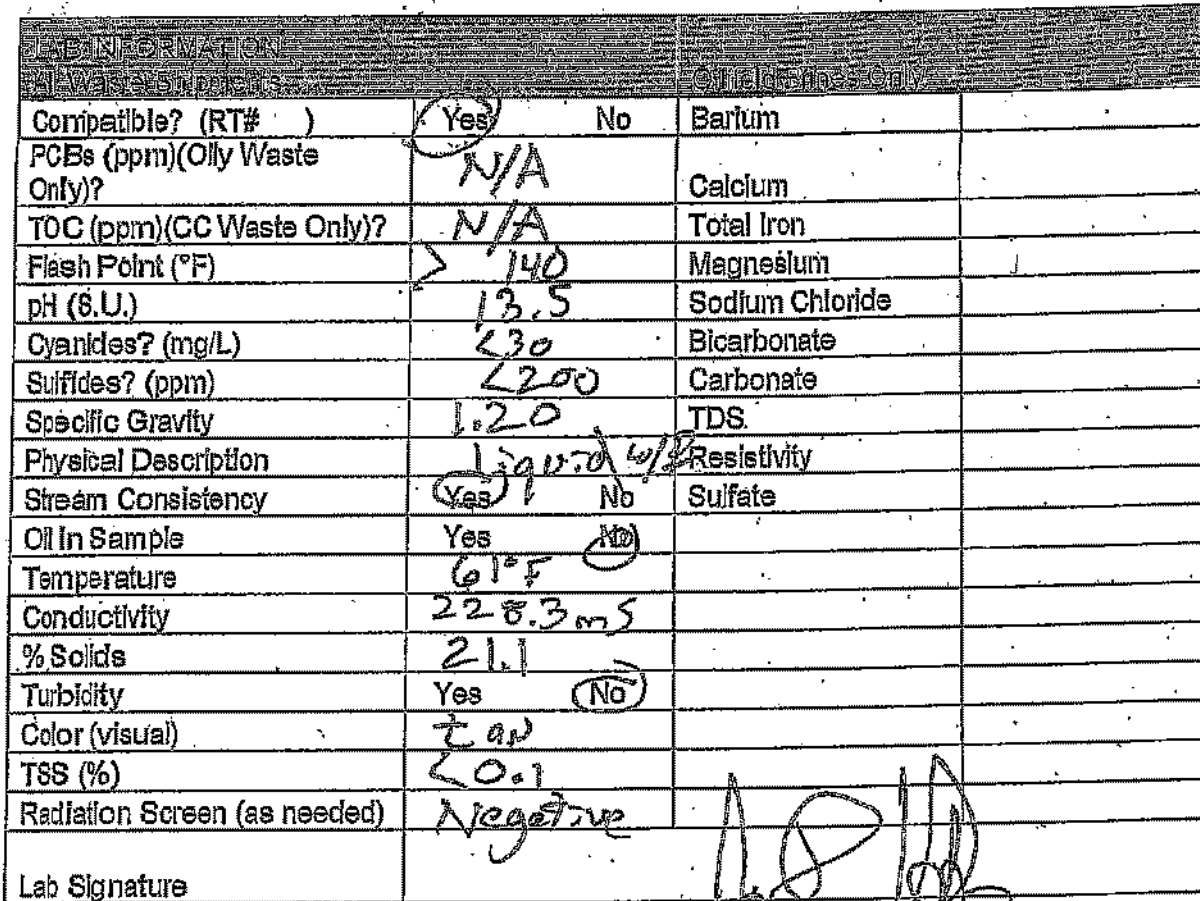 LAB INFORMATION
All Waste Shipments Oilfield Brines Only
Compatible? (RT# ) Yes No Barium
PCBs (ppm)(Oily Waste
Only)? N/A Calcium
TOC (ppm)(CC Waste Only)? N/A Total Iron
Flash Point (°F) > 140 Magnesium
pH (S.U.) 13.5 Sodium Chloride
Cyanides? (mg/L) <30 Bicarbonate
Sulfides? (ppm) <200 Carbonate
Specific Gravity 1.20 TDS
Physical Description Liquid w/ Resistivity
Stream Consistency Yes No Sulfate
Oil In Sample Yes No
Temperature 61°F
Conductivity 228.3 mS
% Solids 21.1
Turbidity Yes No
Color (visual) tan
TSS (%) <0.1
Radiation Screen (as needed) Negative
Lab Signature